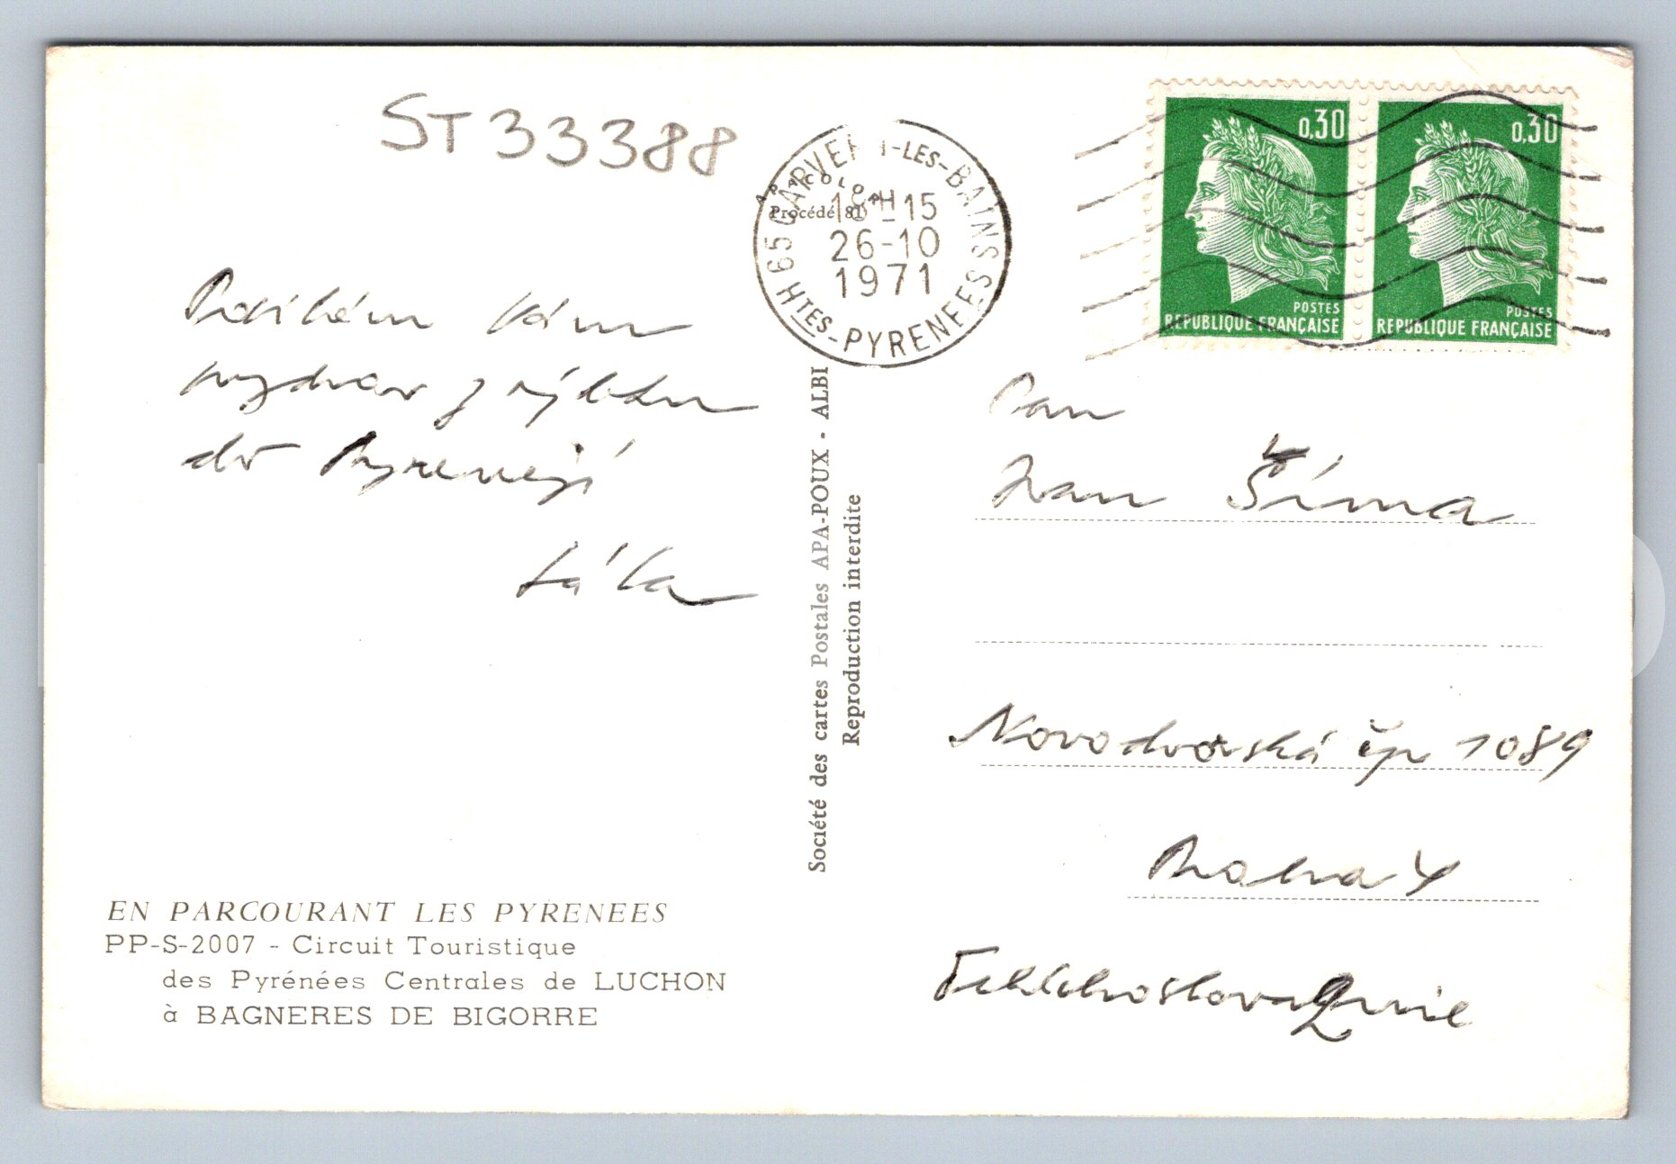 ST33388
CAPVERN-LES-BAINS
18H-15
26-10
1971
65 HTES-PYRENEES
APACOLOR
Procédé 81
0,30
POSTES
REPUBLIQUE FRANÇAISE
0,30
POSTES
REPUBLIQUE FRANÇAISE
Posílám Vám
pozdrav z výletu
do Pyrenejí
Láľa
EN PARCOURANT LES PYRENEES
PP-S-2007 - Circuit Touristique
des Pyrénées Centrales de LUCHON
à BAGNERES DE BIGORRE
Société des cartes Postales APA-POUX - ALBI
Reproduction interdite
Pan
Ivan Šíma
Novodvorská čp 1089
Praha 4
Tchéchoslovaquie